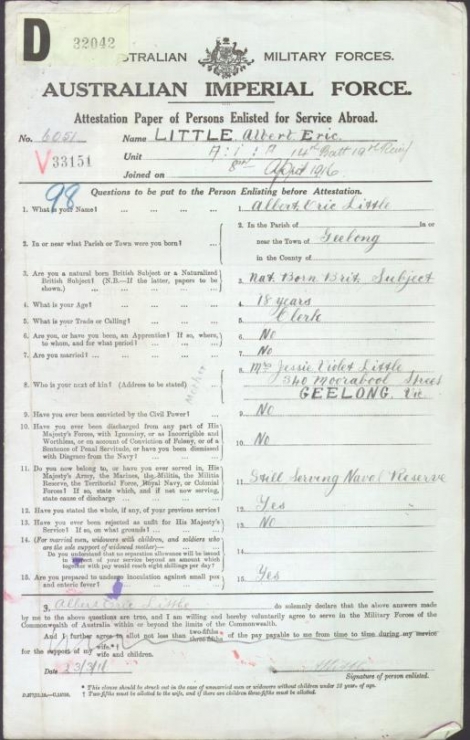 D
32042
AUSTRALIAN MILITARY FORCES.
AUSTRALIAN IMPERIAL FORCE.
Attestation Paper of Persons Enlisted for Service Abroad.
No. 6051 Name LITTLE Albert Eric.
V 33151 Unit A.I.F. 14th Batt 19th Reinf
Joined on 8th April 1916
98
Questions to be put to the Person Enlisting before Attestation.
1. What is your Name? ... ... ... ... 1. Albert Eric Little
2. In or near what Parish or Town were you born? ... 2. In the Parish of in or
near the Town of Geelong
in the County of
3. Are you a natural born British Subject or a Naturalized
British Subject? (N.B.—If the latter, papers to be
shown.) ... ... ... 3. Nat. Born Brit. Subject
4. What is your Age? ... ... ... ... 4. 18 years
5. What is your Trade or Calling? ... ... ... 5. Clerk
6. Are you, or have you been, an Apprentice? If so, where,
to whom, and for what period? ... ... ... 6. No
7. Are you married? ... ... ... ... 7. No
8. Who is your next of kin? (Address to be stated) ... 8. Mrs Jessie Violet Little
340 Moorabool Street
GEELONG, Vic
9. Have you ever been convicted by the Civil Power? ... 9. No
10. Have you ever been discharged from any part of His
Majesty's Forces, with Ignominy, or as Incorrigible and
Worthless, or on account of Conviction of Felony, or of a
Sentence of Penal Servitude, or have you been dismissed
with Disgrace from the Navy? ... ... 10. No
11. Do you now belong to, or have you ever served in, His
Majesty's Army, the Marines, the Militia, the Militia
Reserve, the Territorial Force, Royal Navy, or Colonial
Forces? If so, state which, and if not now serving,
state cause of discharge ... ... 11. Still Serving Naval Reserve
12. Have you stated the whole, if any, of your previous service? 12. Yes
13. Have you ever been rejected as unfit for His Majesty's
Service? If so, on what grounds? ... ... 13. No
14. (For married men, widowers with children, and soldiers who
are the sole support of widowed mother)—
Do you understand that no separation allowance will be issued
in respect of your service beyond an amount which
together with pay would reach eight shillings per day? 14.
15. Are you prepared to undergo inoculation against small pox
and enteric fever? ... ... ... 15. Yes
3. Albert Eric Little do solemnly declare that the above answers made
by me to the above questions are true, and I am willing and hereby voluntarily agree to serve in the Military Forces of the
Commonwealth of Australia within or beyond the limits of the Commonwealth.
And I further agree to allot not less than two-fifths three-fifths of the pay payable to me from time to time during my service
for the support of my wife.* wife and children.
Date 23/3/16
Signature of person enlisted.
* This clause should be struck out in the case of unmarried men or widowers without children under 18 years of age.
† Two-fifths must be allotted to the wife, and if there are children three-fifths must be allotted.